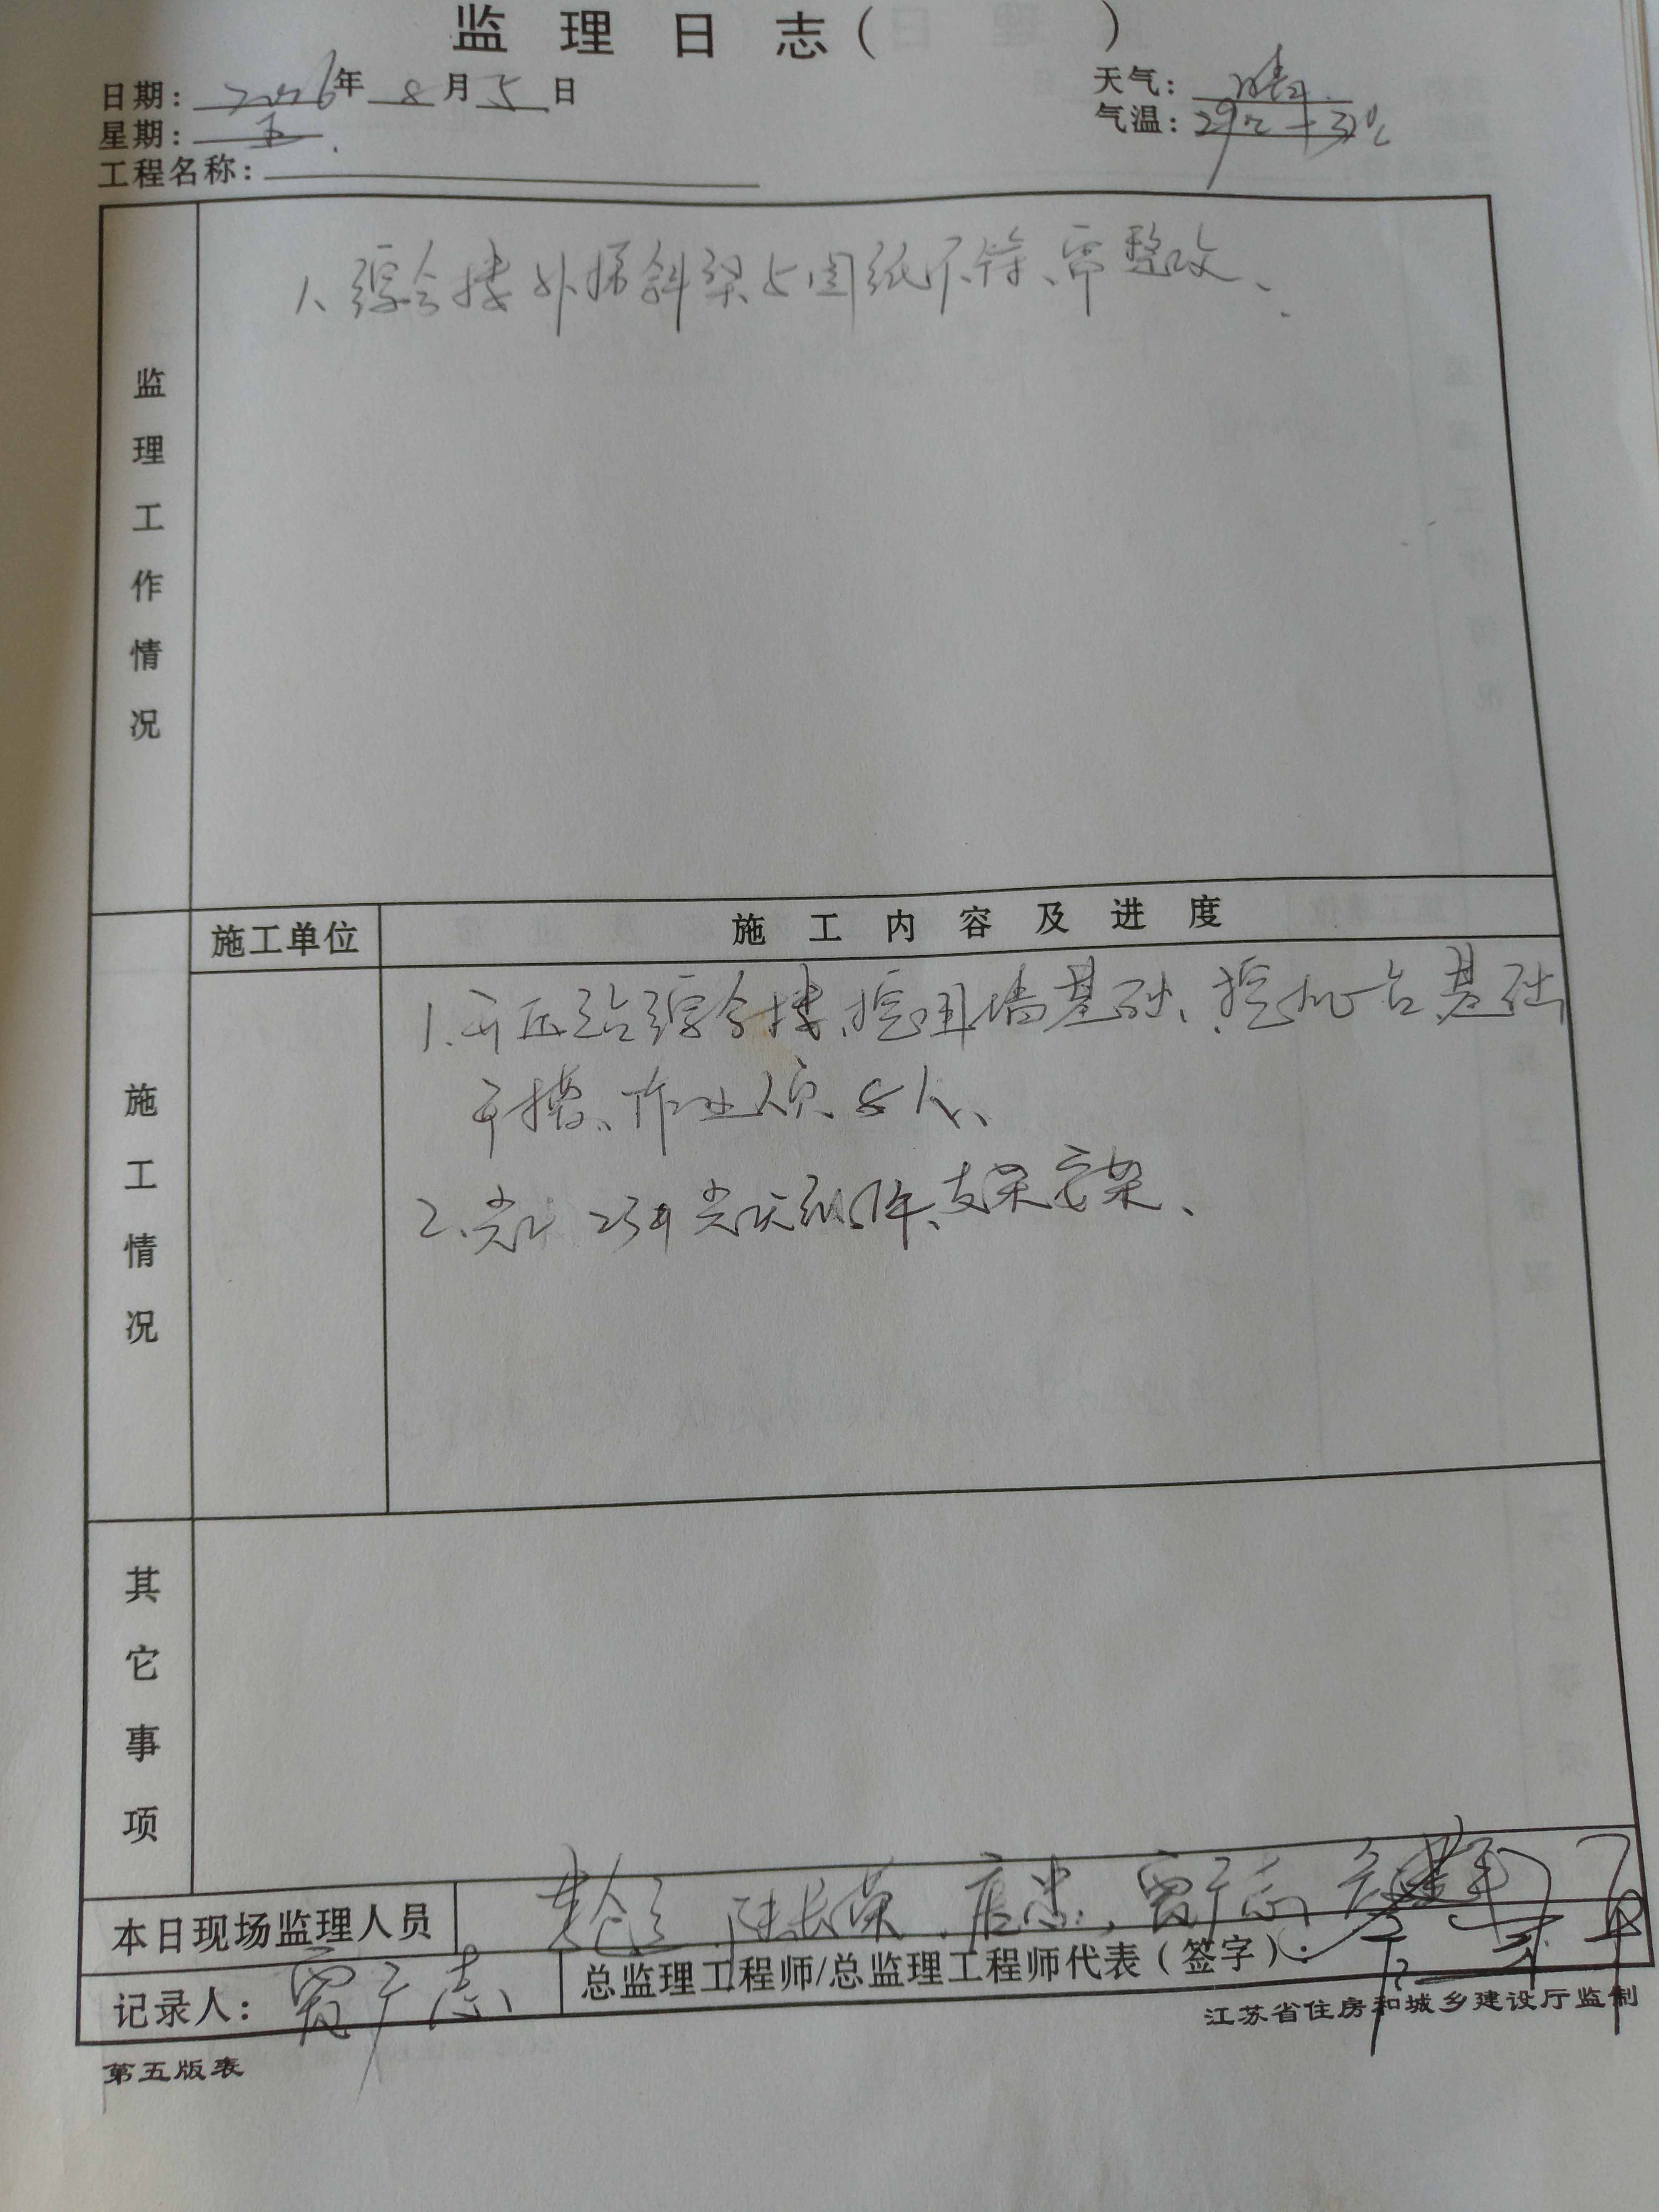 监理日志(        )
日期: 2016年 8月5日
天气: 晴
星期: 五
气温: 29℃—32℃
工程名称:
监理工作情况
1、综合楼外墙斜梁与图纸不符、需整改、
施工单位
施工内容及进度
施工情况
1、开压站综合楼、挖围墙基础、挖机台基础
开槽、作业人员 8人、
2、光 23# 光伏组件、支架安装、
其它事项
本日现场监理人员 陆长荣、唐忠、贾广志
记录人: 贾广志
总监理工程师/总监理工程师代表(签字):
江苏省住房和城乡建设厅监制
第五版表